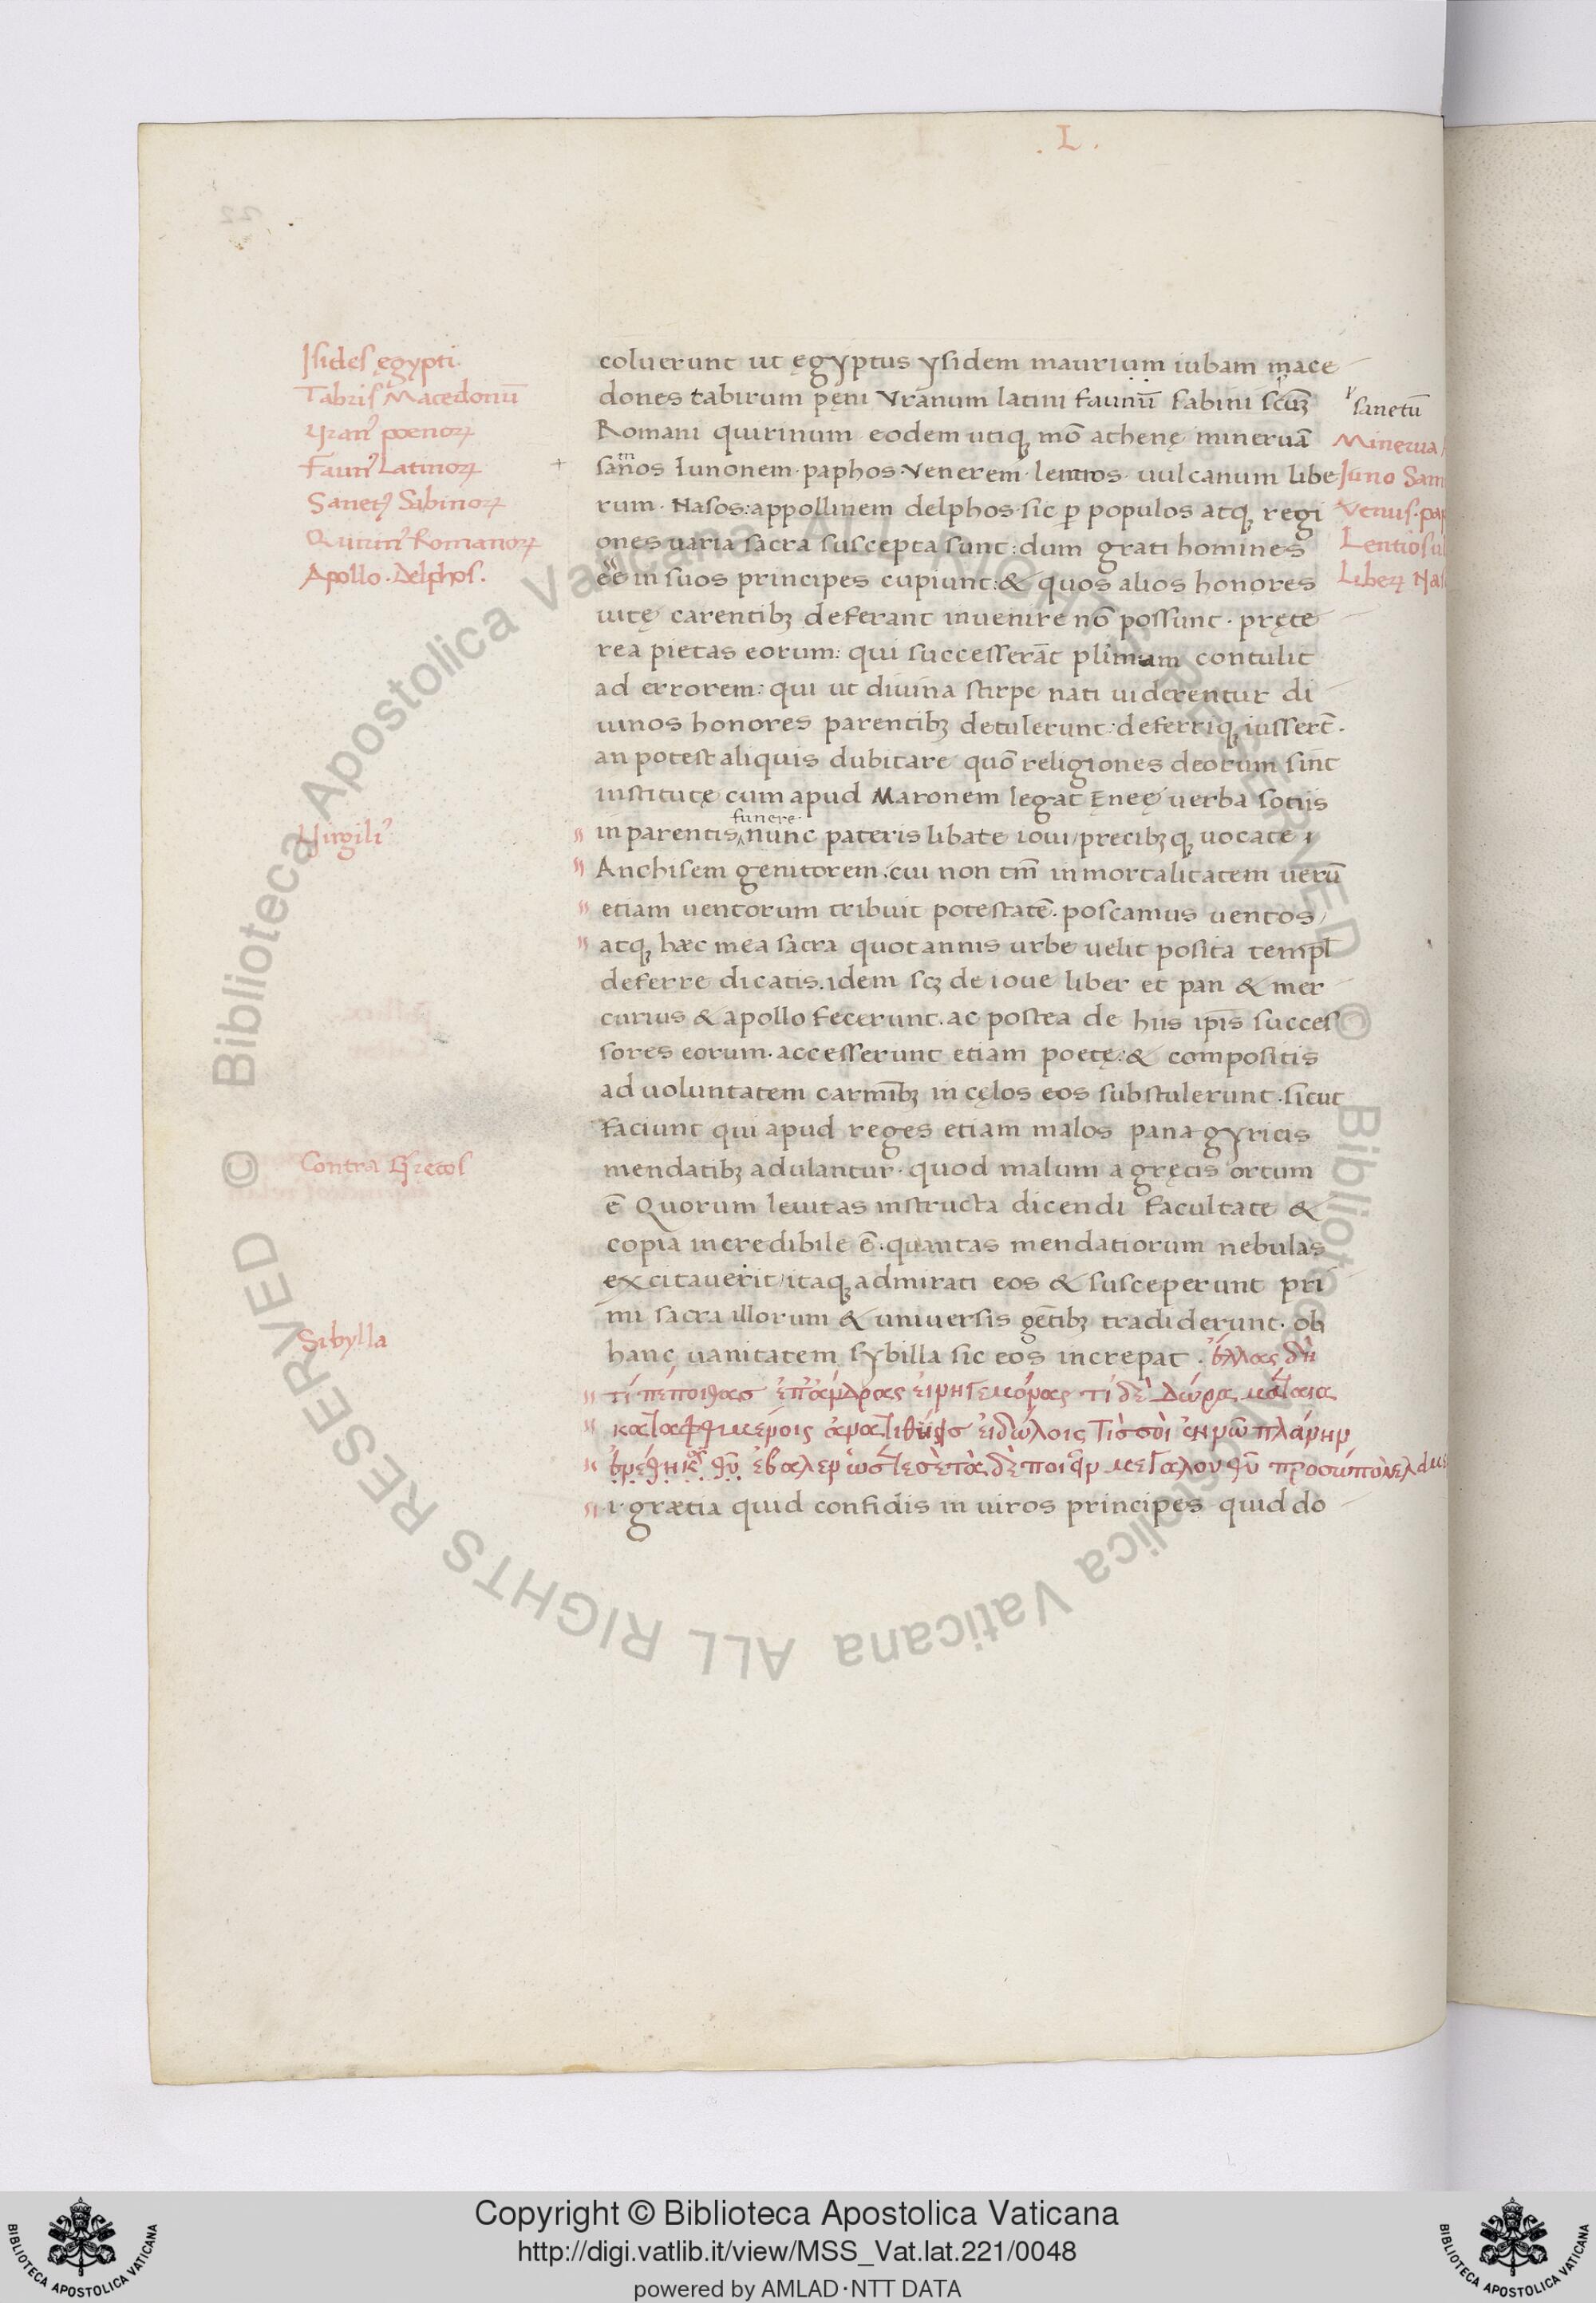 . L .
Isides ęgypti.
Tabris Macedonū
Uran⁹ poenorꝝ
Faun⁹ Latinorꝝ
Sanct⁹ Sabinorꝝ
Quirin⁹ Romanorꝝ
Apollo . Delphos .
Virgili⁹
Contra Gręcos
Sibylla
coluerunt ut ęgyptus ysidem maurium iubam mace
dones tabirum pęni Vranum latini faunū sabini scūꝫ
Romani quirinum eodem utiqꝫ mō athenę mineruā
sanos Iunonem· paphos· Venerem· lemnos· uulcanum libe
rum · Nasos: appollinem delphos· sic ꝑ populos atqꝫ regi
ones uaria sacra suscepta sunt: dum grati homines
eē in suos principes cupiunt: & quos alios honores
uitę carentibꝫ deferant inuenire nō possunt · pręte
rea pietas eorum: qui successerāt plimam contulit
ad errorem: qui ut diuina stirpe nati uiderentur di
uinos honores parentibꝫ detulerunt· deferriqꝫ iussert̄ .
an potest aliquis dubitare quō religiones deorum sint
institutę cum apud Maronem legat Eneę uerba sotiis
funere
in parentis nunc pateris libate ioui/ precibꝫqꝫ uocate
Anchisem genitorem . cui non tm̄ inmortalitatem uerū
etiam uentorum tribuit potestatē . poscamus uentos/
atqꝫ hæc mea sacra quotannis urbe uelit posita templ
deferre dicatis . idem scꝫ de ioue liber et pan & mer
curius & apollo fecerunt . ac postea de hiis ip̄is succes
sores eorum · accesserunt etiam poetę: & compositis
ad uoluntatem carmībꝫ in cęlos eos substulerunt . sicut
faciunt qui apud reges etiam malos panagyricis
mendatibꝫ adulantur · quod malum a gręcis ortum
ē Quorum leuitas instructa dicendi facultate &
copia incredibile ē . quantas mendatiorum nebulas
excitauerit/ itaqꝫ admirati eos & susceperunt pri
mi sacra illorum & uniuersis gētibꝫ tradiderunt . ob
hanc uanitatem sybilla sic eos increpat . ἐλλας δὴ
τί πέποιθασ ἐπ' ἀμδρας τί δὲ Δώρα
ἐιδώλοις
ι· grætia quid confidis in uiros principes quid do
sanctū
Minerua
Juno Sam
Venus . pap
Lentios ul
Liberꝝ Nas
Copyright © Biblioteca Apostolica Vaticana
http://digi.vatlib.it/view/MSS_Vat.lat.221/0048
powered by AMLAD·NTT DATA
BIBLIOTECA APOSTOLICA VATICANA
BIBLIOTECA APOSTOLICA VATICANA
© Biblioteca Apostolica Vaticana ALL RIGHTS RESERVED
© Biblioteca Apostolica Vaticana ALL RIGHTS RESERVED